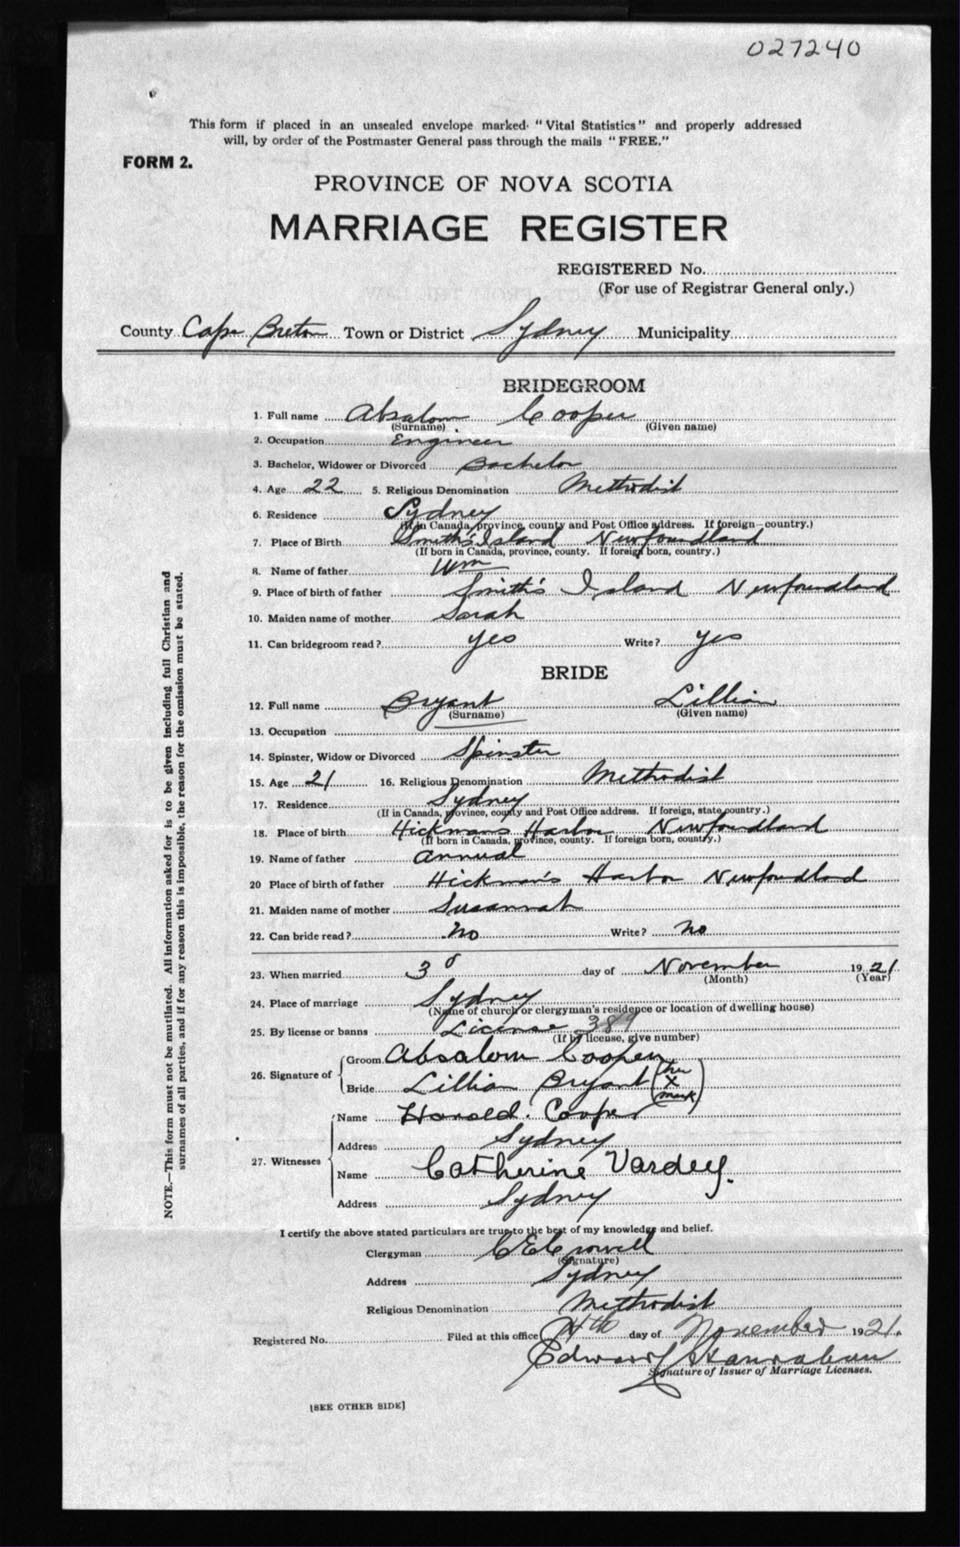 027240
This form if placed in an unsealed envelope marked "Vital Statistics" and properly addressed
will, by order of the Postmaster General pass through the mails "FREE."
FORM 2.
PROVINCE OF NOVA SCOTIA
MARRIAGE REGISTER
REGISTERED No.
(For use of Registrar General only.)
County Cape Breton Town or District Sydney Municipality
BRIDEGROOM
1. Full name Absalom Cooper
(Surname) (Given name)
2. Occupation Engineer
3. Bachelor, Widower or Divorced Bachelor
4. Age 22 5. Religious Denomination Methodist
6. Residence Sydney
(If in Canada, province, county and Post Office address. If foreign—country.)
7. Place of Birth Smith's Island Newfoundland
(If born in Canada, province, county. If foreign born, country.)
8. Name of father Wm
9. Place of birth of father Smith's Island Newfoundland
10. Maiden name of mother Sarah
11. Can bridegroom read? yes Write? yes
BRIDE
12. Full name Bryant Lillian
(Surname) (Given name)
13. Occupation
14. Spinster, Widow or Divorced Spinster
15. Age 21 16. Religious Denomination Methodist
17. Residence Sydney
(If in Canada, province, county and Post Office address. If foreign, state country.)
18. Place of birth Hickman's Harbor Newfoundland
(If born in Canada, province, county. If foreign born, country.)
19. Name of father Annual
20 Place of birth of father Hickman's Harbor Newfoundland
21. Maiden name of mother Susannah
22. Can bride read? no Write? no
23. When married 3 day of November 1921
(Month) (Year)
24. Place of marriage Sydney
(Name of church or clergyman's residence or location of dwelling house)
25. By license or banns License
(If by license, give number)
26. Signature of Groom Absalom Cooper
Bride Lillian Bryant (her X mark)
27. Witnesses Name Harold Cooper
Address Sydney
Name Catherine Vardey.
Address Sydney
I certify the above stated particulars are true to the best of my knowledge and belief.
Clergyman C E Crowell
(Signature)
Address Sydney
Religious Denomination Methodist
Registered No. Filed at this office 4th day of November 1921.
Edward Hanrahan
Signature of Issuer of Marriage Licenses.
[SEE OTHER SIDE]
NOTE.—This form must not be mutilated. All information asked for is to be given including full Christian and
surnames of all parties, and if for any reason this is impossible, the reason for the omission must be stated.